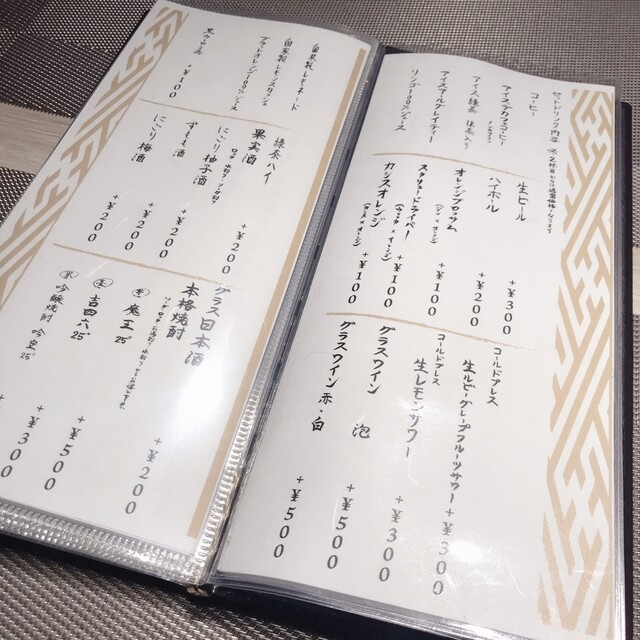 セットドリンク内容 ※2杯目からは通常価格となります
コーヒー
アイスコーヒー
アイス緑茶
アイスウーロンティー
リンゴ100%ジュース
生ビール +¥300
ハイボール +¥200
オレンジブロッサム +¥100
(ジン×オレンジ)
スクリュードライバー +¥100
(ウォッカ×オレンジ)
カシスオレンジ +¥100
(カシス×オレンジ)
コールドプレス
生ルビーグレープフルーツサワー +¥300
コールドプレス
生レモンサワー +¥300
グラスワイン 泡 +¥500
グラスワイン 赤・白 +¥500
自家製レモネード
自家製レモンスカッシュ
ブラッドオレンジ100%ジュース
黒ウーロン茶 +¥100
緑茶ハイ +¥200
果実酒
にごり柚子酒 +¥200
すもも酒 +¥200
にごり梅酒 +¥200
グラス日本酒 +¥200
本格焼酎
魔王 25° +¥500
吉四六 25° +¥300
吟醸焼酎